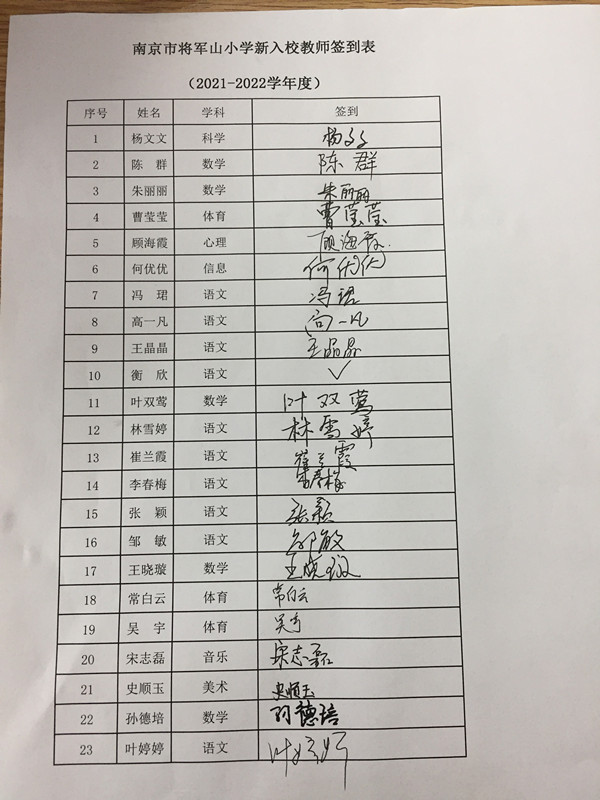 南京市将军山小学新入校教师签到表
（2021-2022学年度）
序号 姓名 学科 签到
1 杨文文 科学 杨文文
2 陈 群 数学 陈群
3 朱丽丽 数学 朱丽丽
4 曹莹莹 体育 曹莹莹
5 顾海霞 心理 顾海霞
6 何优优 信息 何优优
7 冯 珺 语文 冯珺
8 高一凡 语文 高一凡
9 王晶晶 语文 王晶晶
10 衡 欣 语文 ✓
11 叶双莺 数学 叶双莺
12 林雪婷 语文 林雪婷
13 崔兰霞 语文 崔兰霞
14 李春梅 语文 李春梅
15 张 颖 语文 张颖
16 邹 敏 语文 邹敏
17 王晓璇 数学 王晓璇
18 常白云 体育 常白云
19 吴 宇 体育 吴宇
20 宋志磊 音乐 宋志磊
21 史顺玉 美术 史顺玉
22 孙德培 数学 孙德培
23 叶婷婷 语文 叶婷婷